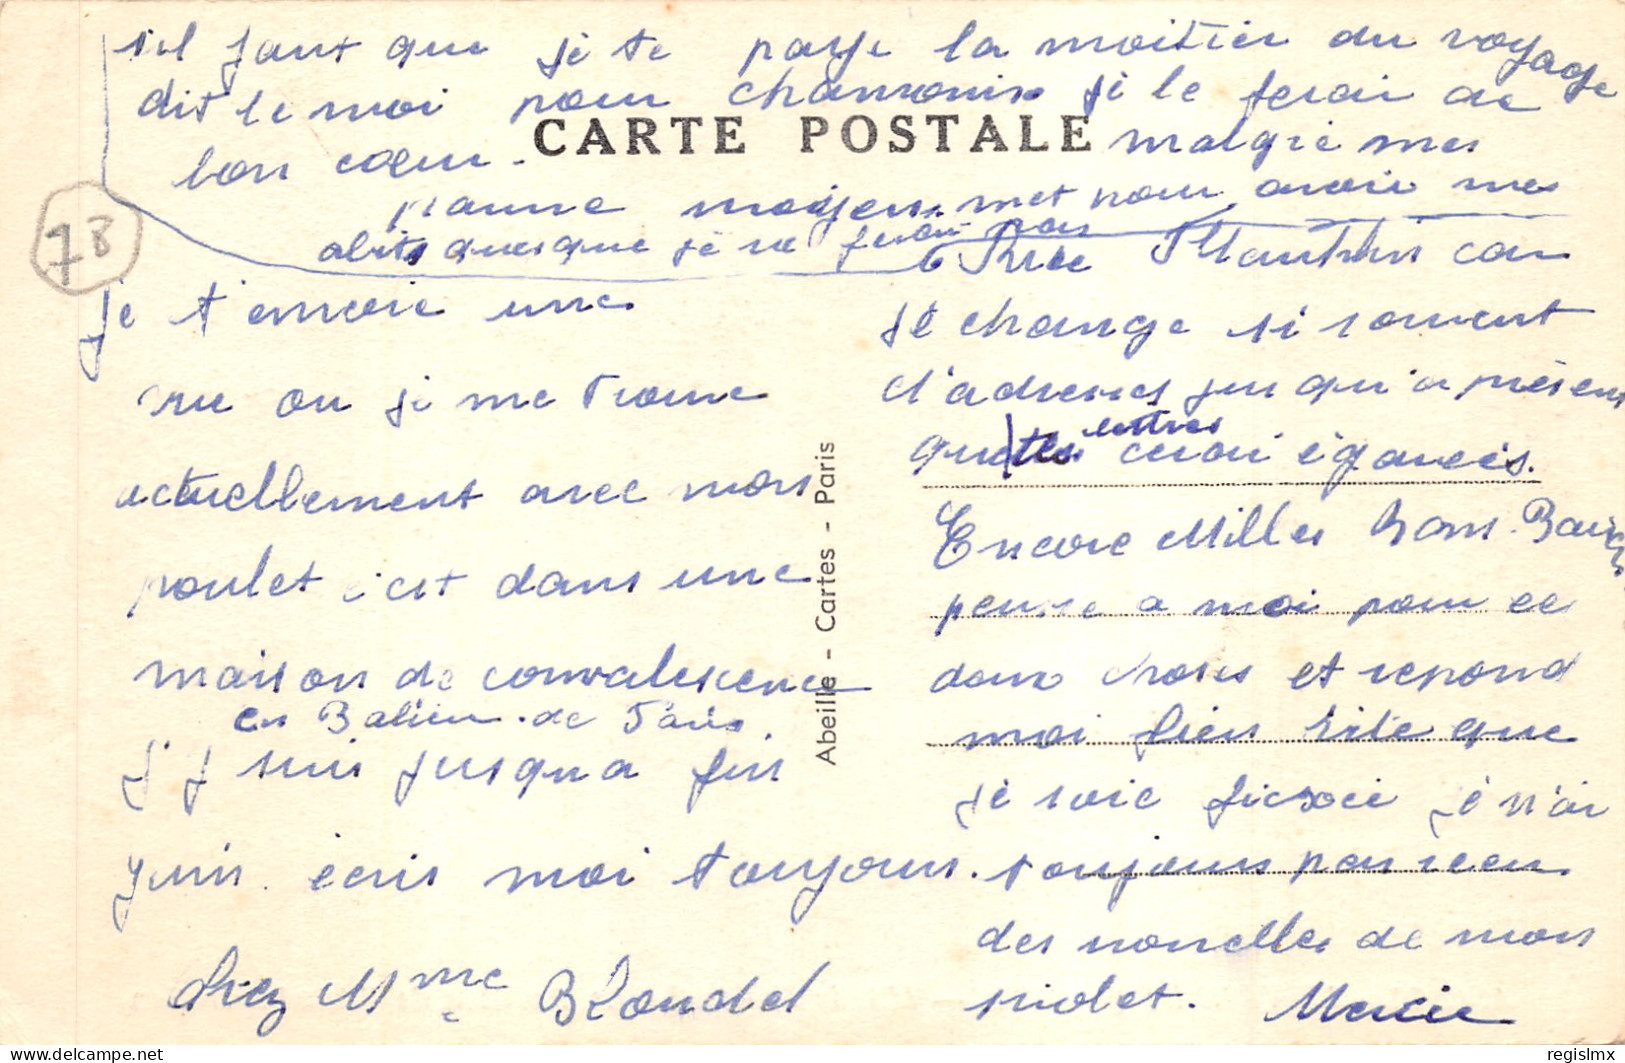 s'il faut que je te paye la moitier du voyage
dit le moi pour chamonix je le ferai de
bon cœur. malgré mes
CARTE POSTALE
pauvre moyen met pour avoir mes
abits quesque je ne ferai pas
78
je t'envoie une
vue ou je me trouve
actuellement avec mon
poulet c'est dans une
maison de convalescence
en Balieu de Paris.
j'y suis jusqu'a fin
juin. écris moi toujours.
chez Mme Blondel
Abeille - Cartes - Paris
6 Rue Plantin car
je change si souvent
d'adresses jusqu'a présent
que tes lettres cerai égareés.
Encore Milles bons Baisers
pensse a moi pour ce
deux choses et repond
moi bien vite que
je soie ficsoée je n'ai
toujours pas reçu
des nouvelles de mon
violet. Mercie
regislmx